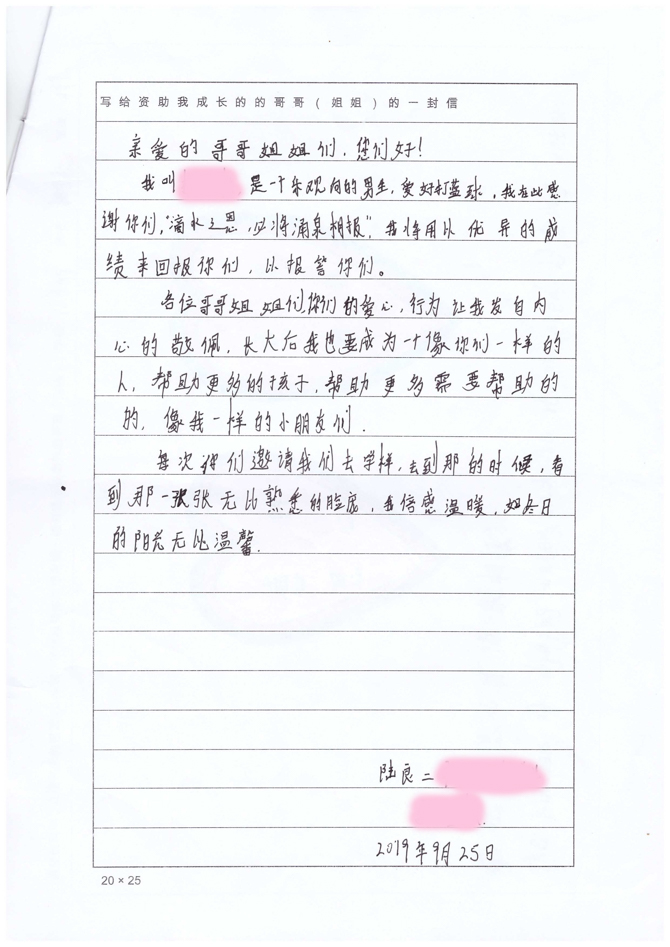 写给资助我成长的的哥哥(姐姐)的一封信
亲爱的哥哥姐姐们,您们好!
我叫 是一个乐观向的男生,爱好打蓝球,我在此感
谢你们,"滴水之恩,必将涌泉相报",我将用以优异的成
绩来回报你们,以报答你们。
各位哥哥姐姐们,你们的爱心,行为让我发自内
心的敬佩,长大后我也要成为一个像你们一样的
人,帮助更多的孩子,帮助更多需要帮助的
的,像我一样的小朋友们.
每次你们邀请我们去学样,去到那的时候,看
到那一张张无比熟悉的脸庞,我倍感温暖,如冬日
的阳光无比温馨.
陆良二
2019年9月25日
20×25